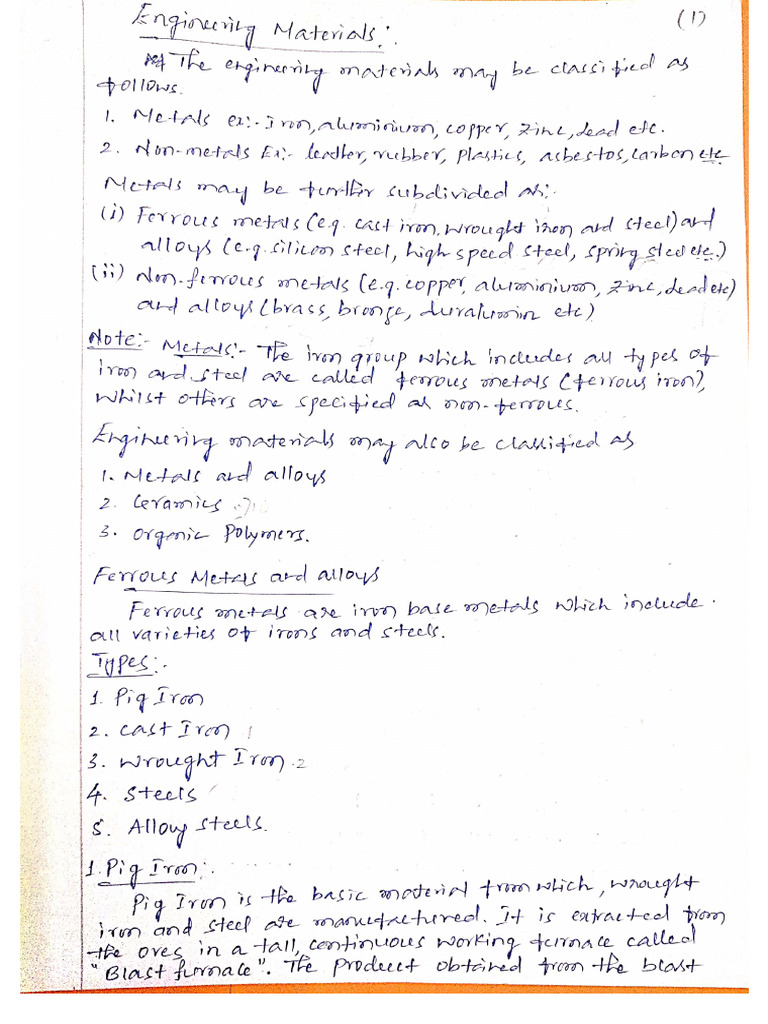 (1)
Engineering Materials:-
The engineering materials may be classified as
follows.
1. Metals ex:- Iron, aluminium, copper, zinc, lead etc.
2. Non-metals Ex:- leather, rubber, plastics, asbestos, carbon etc
Metals may be further subdivided as:-
(i) Ferrous metals (e.g. cast iron, wrought iron and steel) and
alloys (e.g. silicon steel, high speed steel, spring steel etc.)
(ii) Non-ferrous metals (e.g. copper, aluminium, zinc, lead etc)
and alloys (brass, bronze, duralumin etc)
Note:- Metals:- The iron group which includes all types of
iron and steel are called ferrous metals (ferrous iron),
whilst others are specified as non-ferrous.
Engineering materials may also be classified as
1. Metals and alloys
2. Ceramics
3. Organic Polymers.
Ferrous Metals and alloys
Ferrous metals are iron base metals which include
all varieties of irons and steels.
Types:-
1. Pig Iron
2. Cast Iron 1
3. Wrought Iron 2
4. Steels
5. Alloy steels.
1. Pig Iron:-
Pig Iron is the basic material from which, wrought
iron and steel are manufactured. It is extracted from
the ores in a tall, continuous working furnace called
"Blast furnace". The product obtained from the blast